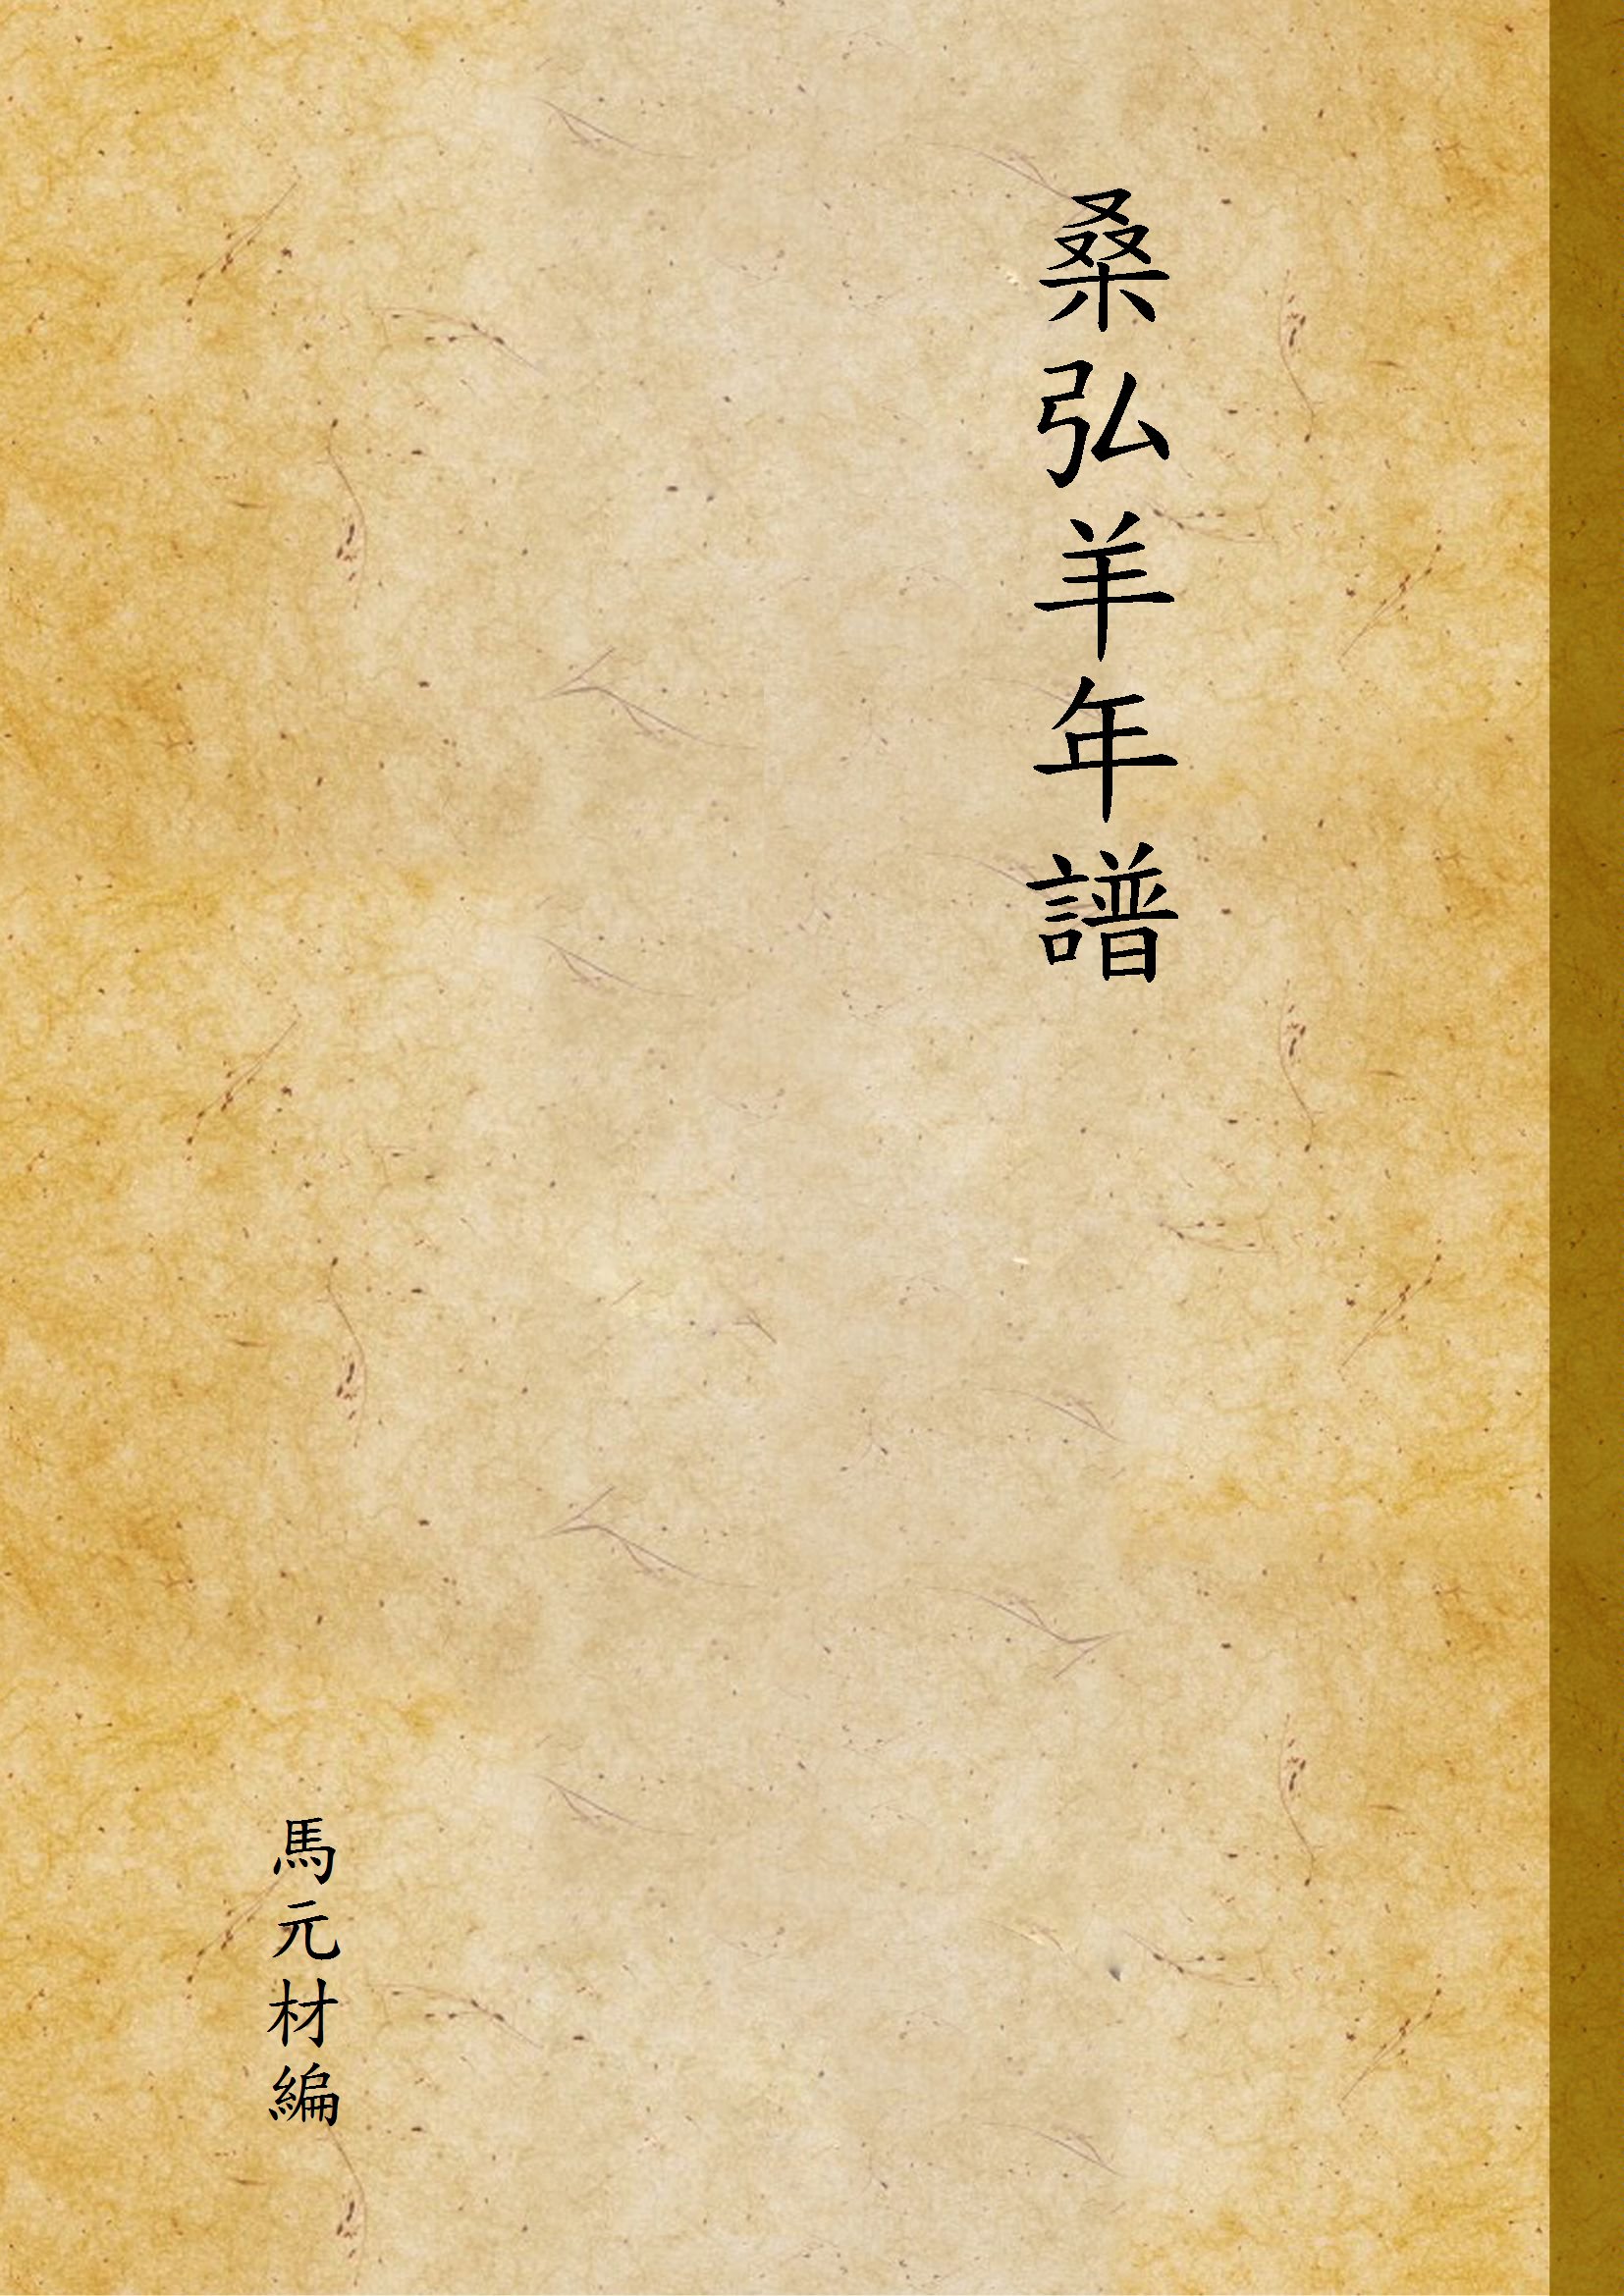 桑弘羊年譜
馬元材編